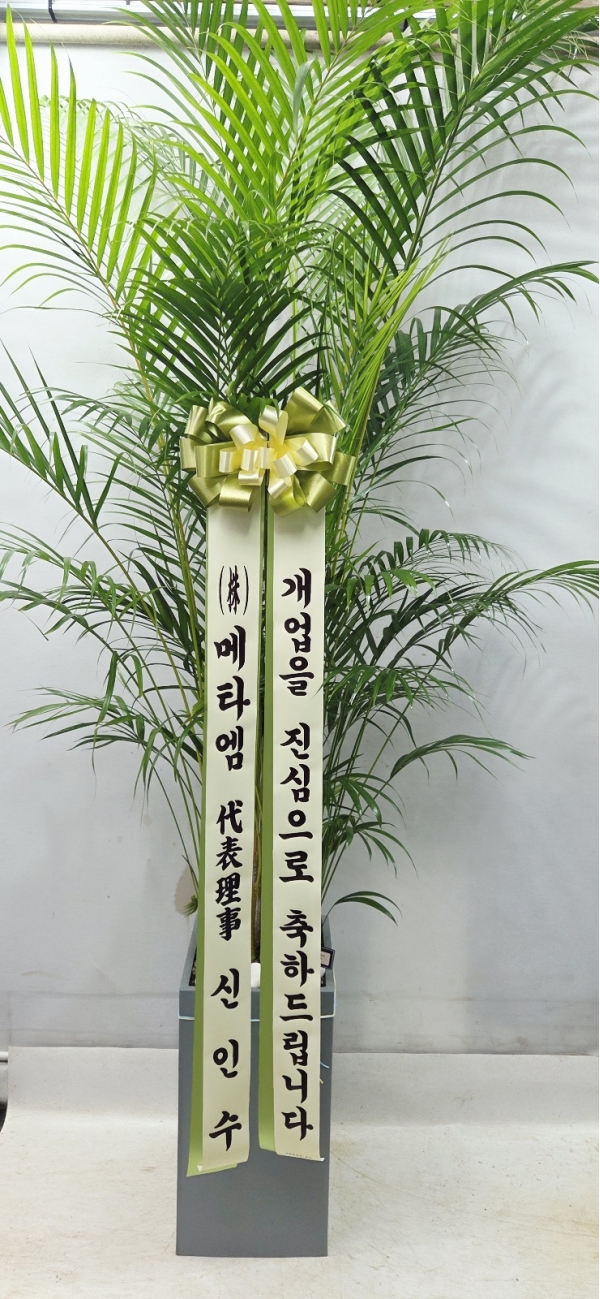 개업을 진심으로 축하드립니다
(株)메타엠 代表理事 신인수